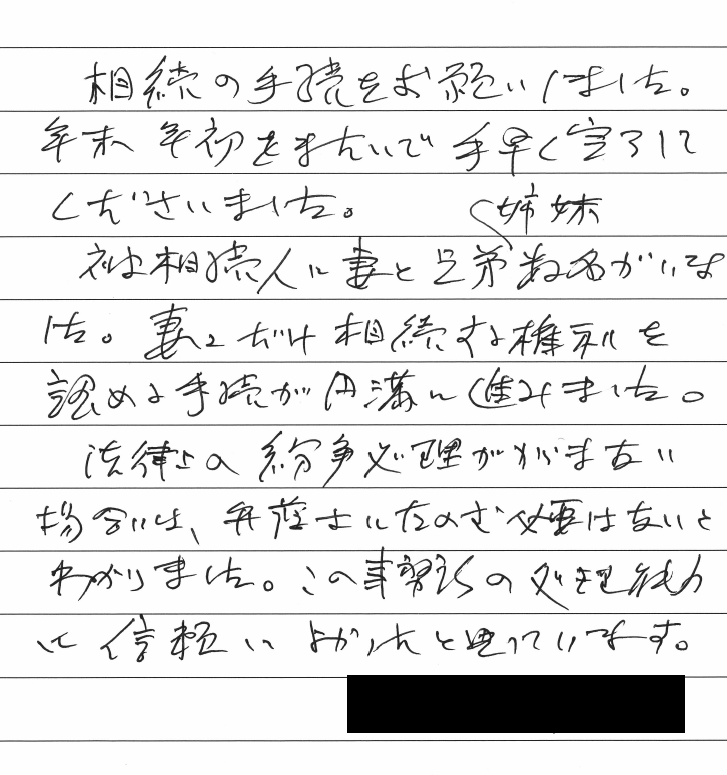 相続の手続をお願いしました。
年末年初をまたいで手早く完了して
くださいました。
姉妹
被相続人に妻と兄弟数名がいま
した。妻にだけ相続する権利を
認める手続が円満に進みました。
法律上の紛争処理がからまない
場合は、弁護士にたのむ必要はないと
わかりました。この事務所の処理能力
に信頼してよかったと思っています。